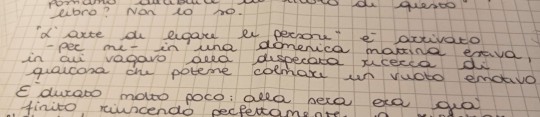 di questo
libro? Non lo so.
"L'arte di legare le persone" è arrivato
- per me - in una domenica mattina
in cui vagavo alla disperata ricerca di
qualcosa che potesse colmare un vuoto emotivo.
È durato molto poco: alla sera era già
finito, riuscendo perfettamente